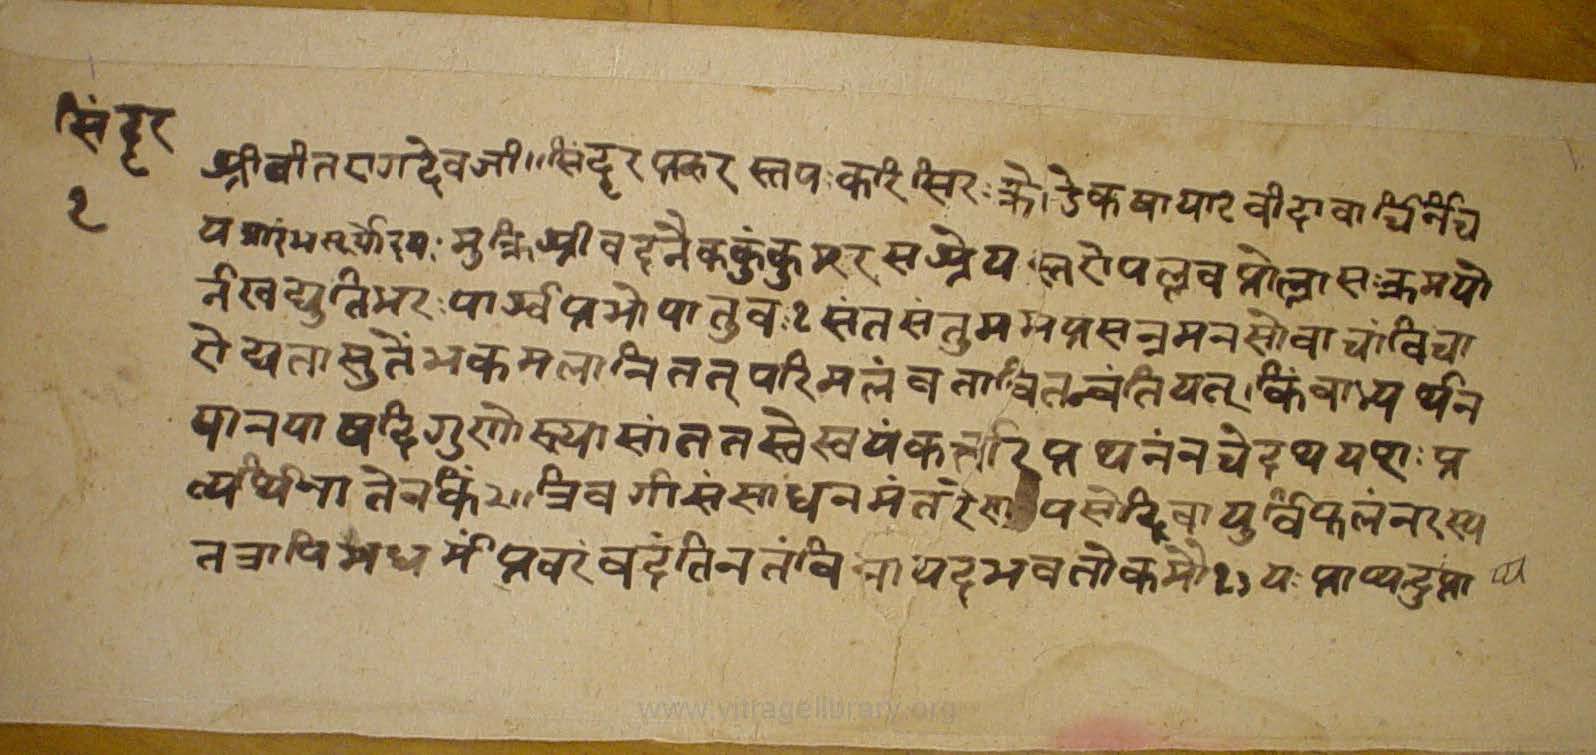 सिंदूर
१
श्रीवीतरागदेवजी॥सिंदूरप्रकरस्तपःकरिसिरःक्रोडेकषायाटवीदावार्चिर्निच
यप्रारंभसूर्योदयःमुक्तिश्रीवदनैककुंकुमरसश्रेयस्तरोपल्लवप्रोल्लासःक्रमयो
र्नखद्युतिभरःपार्श्वप्रभोपातुवः१संतसंतुममप्रसन्नमनसोवाचांविचा
रोद्यतास्सुतेंभकमलानितत्परिमलंवतावितन्वंतियत्।किंवाभ्यर्थन
यानयायदिगुणोस्त्यासांततस्तेस्वयंकर्त्तारिप्रथनंनचेदथयशःप्र
त्यर्थिनातेनकिं२॥त्रिवर्गसंसाधनमंतरेणपसोरिवायुर्विफलंनरस्य
तत्रापिमधर्मंप्रवरंवदंतिनतंविनायद्भवतोकर्मौ३यःप्राप्यदुप्रा
www.vitragelibrary.org